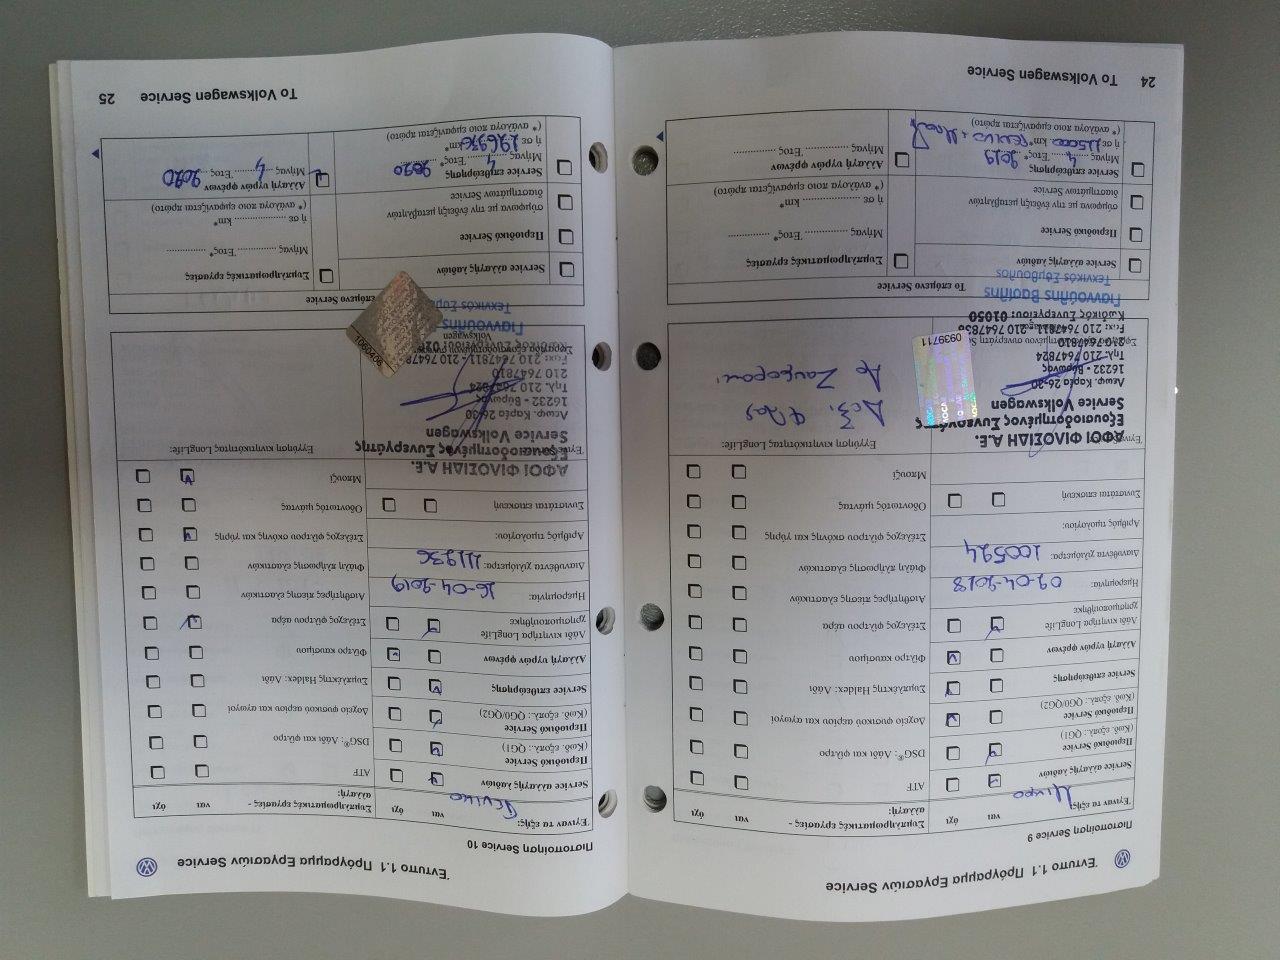 Έντυπο 1.1 Πρόγραμμα Εργασιών Service
Πιστοποίηση Service 9
Έγιναν τα εξής:
Μικρο
ναι όχι
Service αλλαγής λαδιών
Περιοδικό Service
(Κωδ. εξοπλ.: QG1)
Περιοδικό Service
(Κωδ. εξοπλ.: QG0/QG2)
Service επιθεώρησης
Αλλαγή υγρών φρένων
Λάδι κινητήρα LongLife
χρησιμοποιήθηκε
Ημερομηνία: 02-04-2018
Διανυθέντα χιλιόμετρα: 100524
Αριθμός τιμολογίου:
Συνιστάται επισκευή
Συμπληρωματικές εργασίες -
αλλαγή:
ναι όχι
ATF
DSG®: Λάδι και φίλτρο
Δοχείο φυσικού αερίου και αγωγοί
Συμπλέκτης Haldex: Λάδι
Φίλτρο καυσίμου
Στέλεχος φίλτρου αέρα
Αισθητήρες πίεσης ελαστικών
Φιάλη πλήρωσης ελαστικών
Στέλεχος φίλτρου σκόνης και γύρης
Οδοντωτός ιμάντας
Μπουζί
Εγγύηση κινητικότητας LongLife:
ΑΦΟΙ ΦΙΛΟΣΙΔΗ Α.Ε.
Εξουσιοδοτημένος Συνεργάτης
Service Volkswagen
Λεωφ. Καρέα 26-30
16232 - Βύρωνας
Τηλ. 210 7647824
210 7647810
Fax: 210 7647811 - 210 7647838
Κωδικός Συνεργείου: 01050
Γιαννούλης Βασίλης
Τεχνικός Σύμβουλος
0939711
Το επόμενο Service
Service αλλαγής λαδιών
Περιοδικό Service
σύμφωνα με την ένδειξη μεταβλητών
διαστημάτων Service
Service επιθεώρησης
Μήνας 4 Έτος* 2019
ή σε 115000 km*
(* ανάλογα ποιο εμφανίζεται πρώτο)
Συμπληρωματικές εργασίες
Μήνας Έτος*
ή σε km*
(* ανάλογα ποιο εμφανίζεται πρώτο)
Αλλαγή υγρών φρένων
Μήνας Έτος
24 Το Volkswagen Service
Έντυπο 1.1 Πρόγραμμα Εργασιών Service
Πιστοποίηση Service 10
Έγιναν τα εξής:
Γενικο
ναι όχι
Service αλλαγής λαδιών
Περιοδικό Service
(Κωδ. εξοπλ.: QG1)
Περιοδικό Service
(Κωδ. εξοπλ.: QG0/QG2)
Service επιθεώρησης
Αλλαγή υγρών φρένων
Λάδι κινητήρα LongLife
χρησιμοποιήθηκε
Ημερομηνία: 16-04-2019
Διανυθέντα χιλιόμετρα: 111936
Αριθμός τιμολογίου:
Συνιστάται επισκευή
Συμπληρωματικές εργασίες -
αλλαγή:
ναι όχι
ATF
DSG®: Λάδι και φίλτρο
Δοχείο φυσικού αερίου και αγωγοί
Συμπλέκτης Haldex: Λάδι
Φίλτρο καυσίμου
Στέλεχος φίλτρου αέρα
Αισθητήρες πίεσης ελαστικών
Φιάλη πλήρωσης ελαστικών
Στέλεχος φίλτρου σκόνης και γύρης
Οδοντωτός ιμάντας
Μπουζί
Εγγύηση κινητικότητας LongLife:
ΑΦΟΙ ΦΙΛΟΣΙΔΗ Α.Ε.
Εξουσιοδοτημένος Συνεργάτης
Service Volkswagen
Λεωφ. Καρέα 26-30
16232 - Βύρωνας
Τηλ. 210 7647824
210 7647810
Fax: 210 7647811 - 210 7647838
Γιαννούλης
Τεχνικός Σύμβουλος
1060406
επόμενο Service
Service αλλαγής λαδιών
Περιοδικό Service
σύμφωνα με την ένδειξη μεταβλητών
διαστημάτων Service
Service επιθεώρησης
Μήνας 4 Έτος* 2020
ή σε 126936 km*
(* ανάλογα ποιο εμφανίζεται πρώτο)
Συμπληρωματικές εργασίες
Μήνας Έτος*
ή σε km*
(* ανάλογα ποιο εμφανίζεται πρώτο)
Αλλαγή υγρών φρένων
Μήνας 4 Έτος 2020
Το Volkswagen Service 25